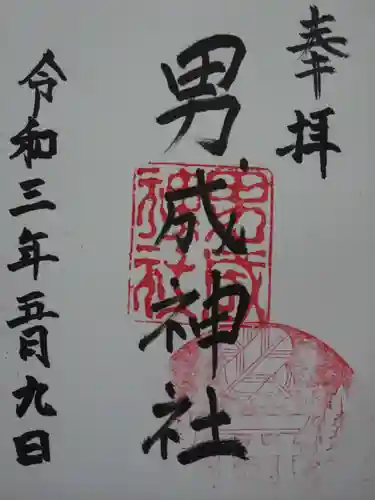 奉拝
男成神社
令和三年五月九日
男成神社